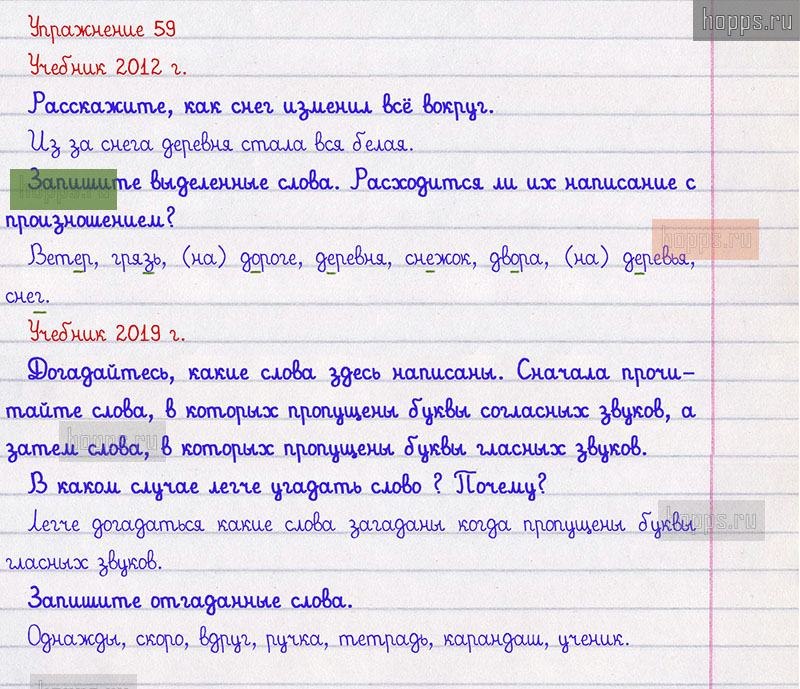 hopps.ru
Упражнение 59
Учебник 2012 г.
Расскажите, как снег изменил всё вокруг.
Из за снега деревня стала вся белая.
Запишите выделенные слова. Расходится ли их написание с
hopps.ru
произношением?
hopps.ru
Ветер, грязь, (на) дороге, деревня, снежок, двора, (на) деревья,
снег.
Учебник 2019 г.
Догадайтесь, какие слова здесь написаны. Сначала прочи-
тайте слова, в которых пропущены буквы согласных звуков, а
затем слова, в которых пропущены буквы гласных звуков.
hopps.ru
В каком случае легче угадать слово ? Почему?
Легче догадаться какие слова загаданы когда пропущены буквы
hopps.ru
гласных звуков.
Запишите отгаданные слова.
Однажды, скоро, вдруг, ручка, тетрадь, карандаш, ученик.
hopps.ru